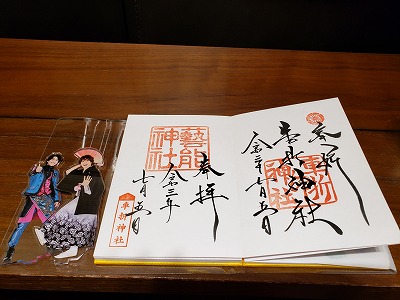 奉拝
車折神社
車折神社
令和三年七月五日
奉拝
藝能神社
令和三年
七月五日
車折神社